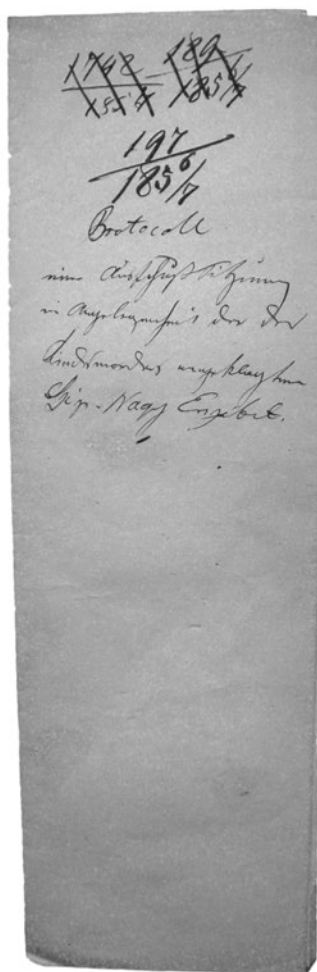 197
185 6/7
Protocoll
einer Ausschußsitzung
in Angelegenheit der des
Kindsmordes angeklagten
Nagy Erzsebet.